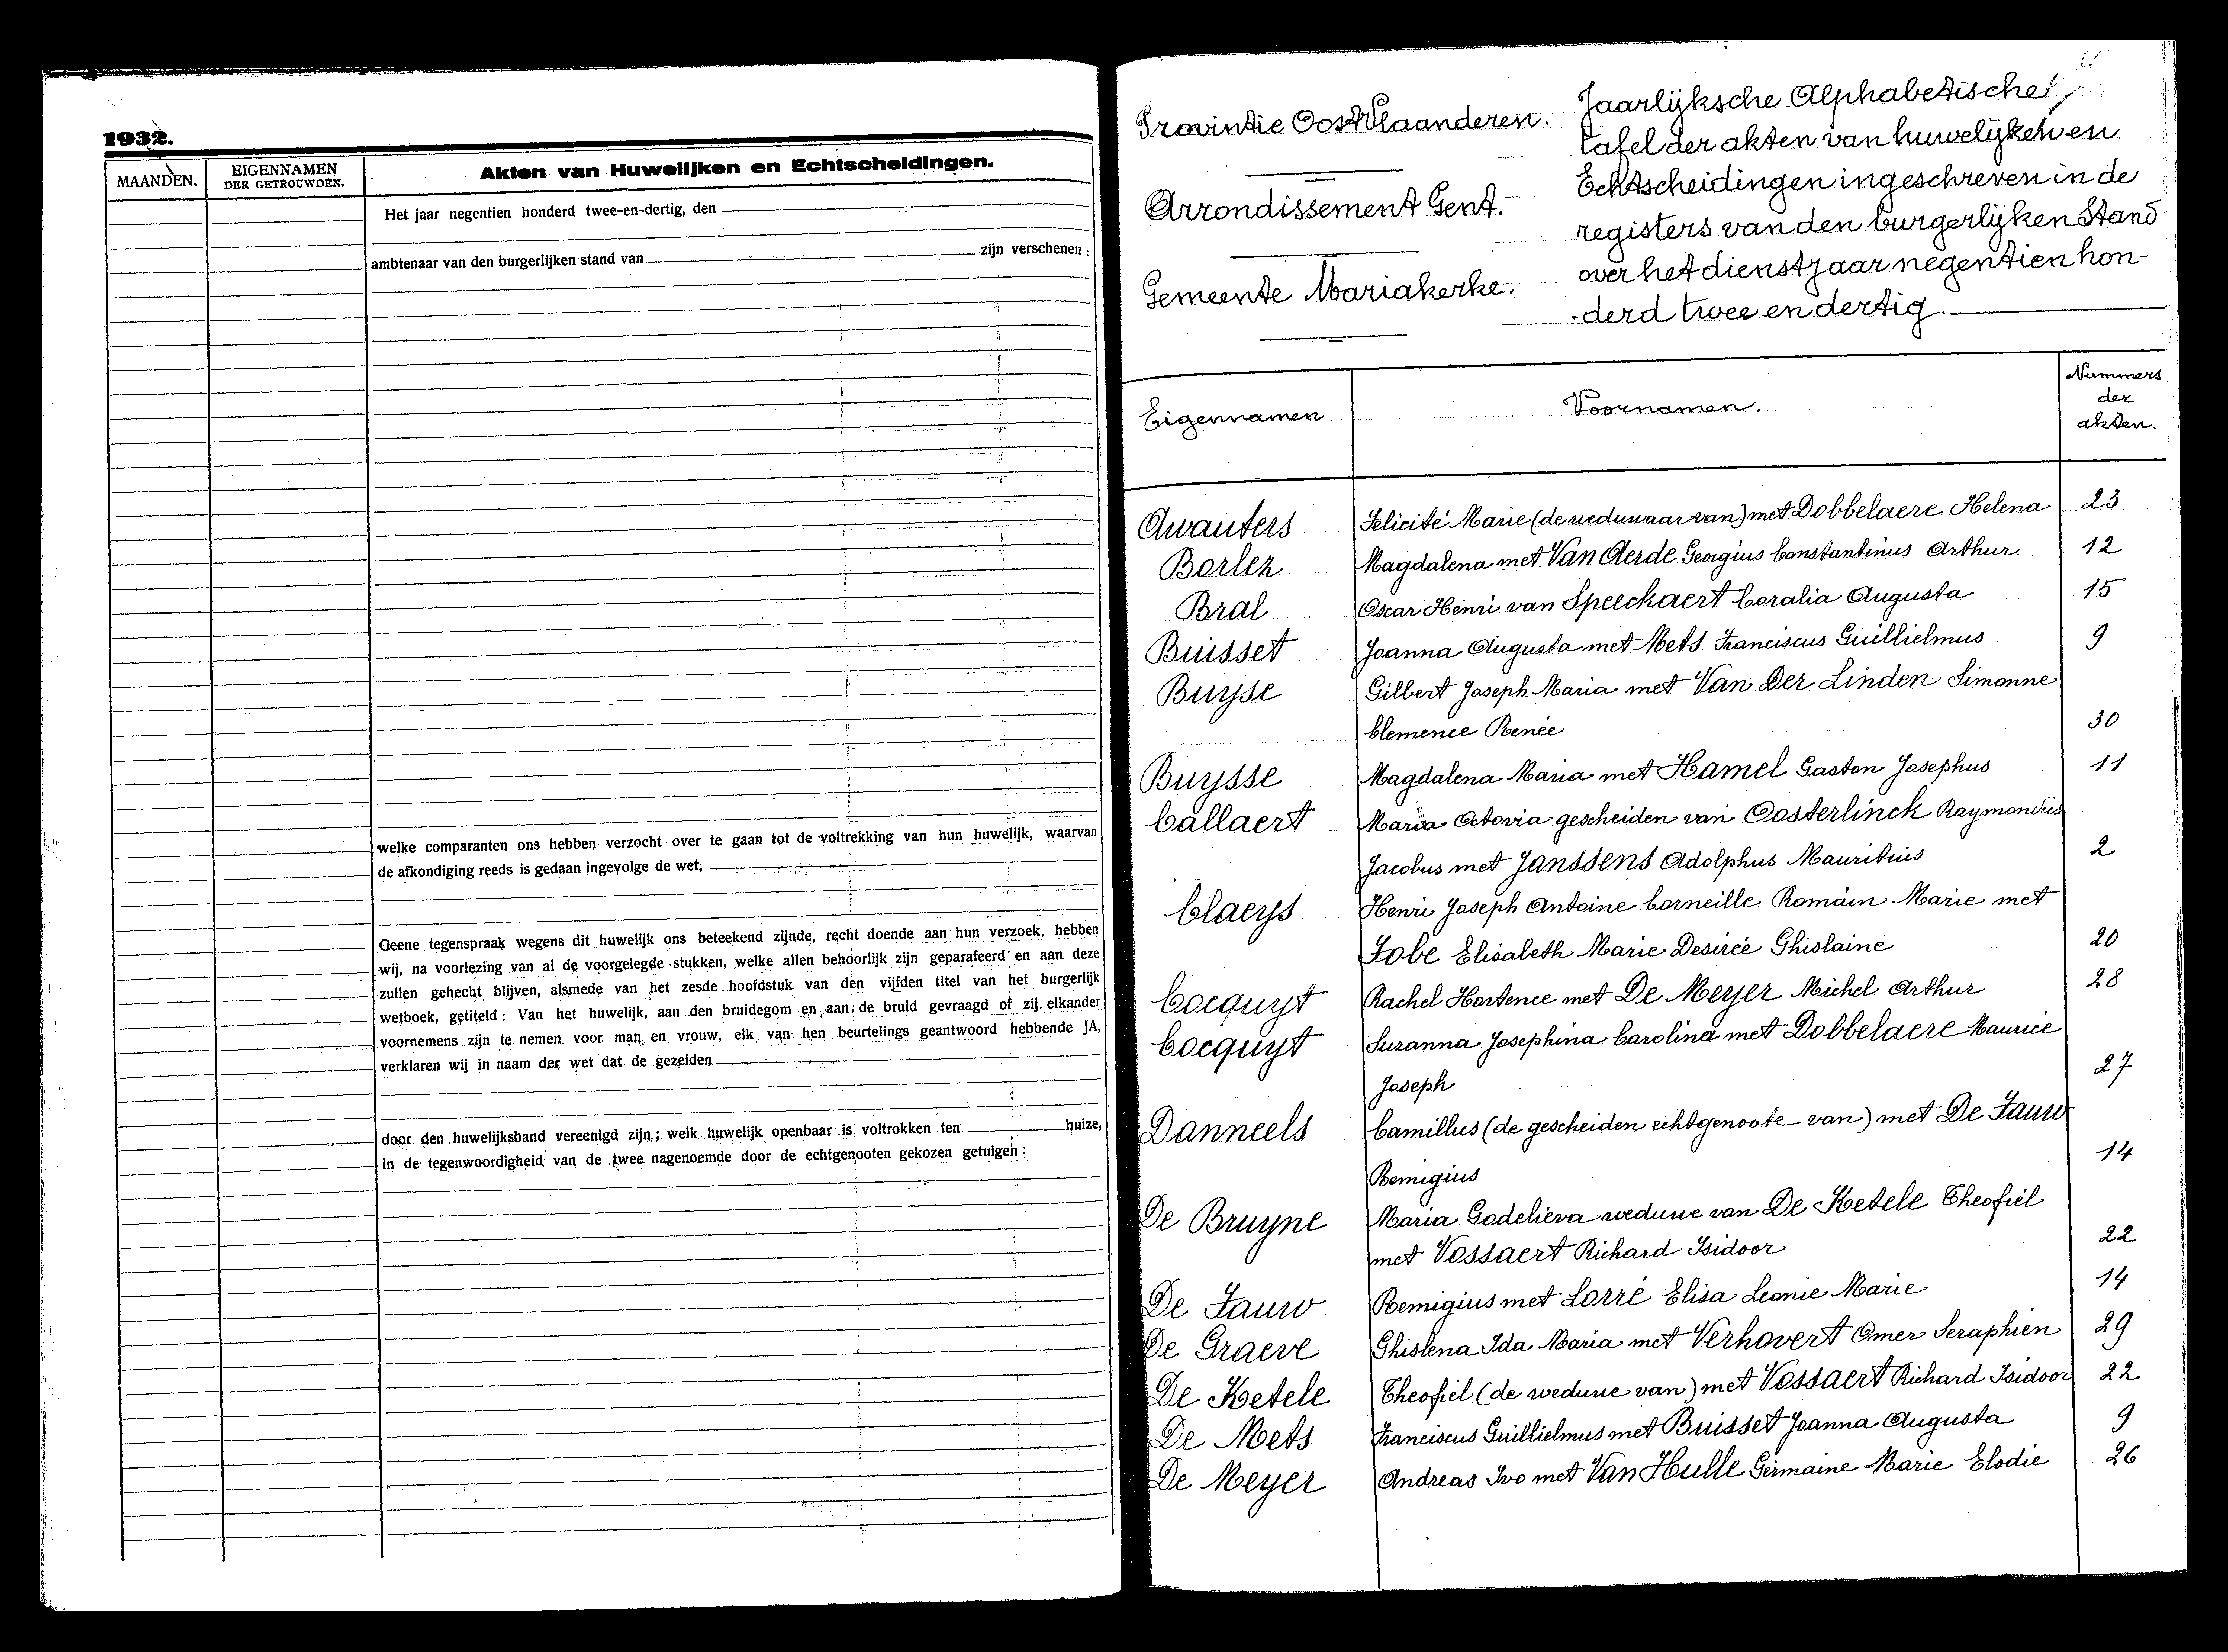 1932.
MAANDEN.
EIGENNAMEN
DER GETROUWDEN.
Akten van Huwelijken en Echtscheidingen.
Het jaar negentien honderd twee-en-dertig, den
ambtenaar van den burgerlijken stand van zijn verschenen :
welke comparanten ons hebben verzocht over te gaan tot de voltrekking van hun huwelijk, waarvan
de afkondiging reeds is gedaan ingevolge de wet,
Geene tegenspraak wegens dit huwelijk ons beteekend zijnde, recht doende aan hun verzoek, hebben
wij, na voorlezing van al de voorgelegde stukken, welke allen behoorlijk zijn geparafeerd en aan deze
zullen gehecht blijven, alsmede van het zesde hoofdstuk van den vijfden titel van het burgerlijk
wetboek, getiteld : Van het huwelijk, aan den bruidegom en aan de bruid gevraagd of zij elkander
voornemens zijn te nemen voor man en vrouw, elk van hen beurtelings geantwoord hebbende JA,
verklaren wij in naam der wet dat de gezeiden
door den huwelijksband vereenigd zijn ; welk huwelijk openbaar is voltrokken ten huize,
in de tegenwoordigheid van de twee nagenoemde door de echtgenooten gekozen getuigen :
Provintie Oost Vlaanderen.
Arrondissement Gent.
Gemeente Mariakerke.
Jaarlijksche Alphabetische
tafel der akten van huwelijken en
Echtscheidingen ingeschreven in de
registers van den burgerlijken Stand
over het dienstjaar negentien hon-
-derd twee en dertig.
Eigennamen. Voornamen. Nummers
der
akten.
Awauters Felicité Marie (de weduwaar van) met Dobbelaere Helena 23
Borlez Magdalena met Van Aerde Georgius Constantinus Arthur 12
Bral Oscar Henri van Speeckaert Coralia Augusta 15
Buisset Joanna Augusta met Mets Franciscus Guillielmus 9
Buyse Gilbert Joseph Maria met Van Der Linden Simonne
Clemence Renée 30
Buysse Magdalena Maria met Hamel Gaston Josephus 11
Callaert Maria Octovia gescheiden van Oosterlinck Raymondus
Jacobus met Janssens Adolphus Mauritius 2
Claeys Henri Joseph Antoine Corneille Romain Marie met
Fobe Elisabeth Marie Desirée Ghislaine 20
Cocquyt Rachel Hortence met De Meyer Michel Arthur 28
Cocquyt Suzanna Josephina Carolina met Dobbelaere Maurice
Joseph 27
Danneels Camillus (de gescheiden echtgenoote van) met De Fauw
Remigius 14
De Bruyne Maria Godelieva weduwe van De Ketele Theofiel
met Vossaert Richard Isidoor 22
De Fauw Remigius met Lorré Elisa Leonie Marie 14
De Graeve Ghislena Ida Maria met Verhovert Omer Seraphien 29
De Ketele Theofiel (de weduwe van) met Vossaert Richard Isidoor 22
De Mets Franciscus Guillielmus met Buisset Joanna Augusta 9
De Meyer Andreas Ivo met Van Hulle Germaine Marie Elodie 26